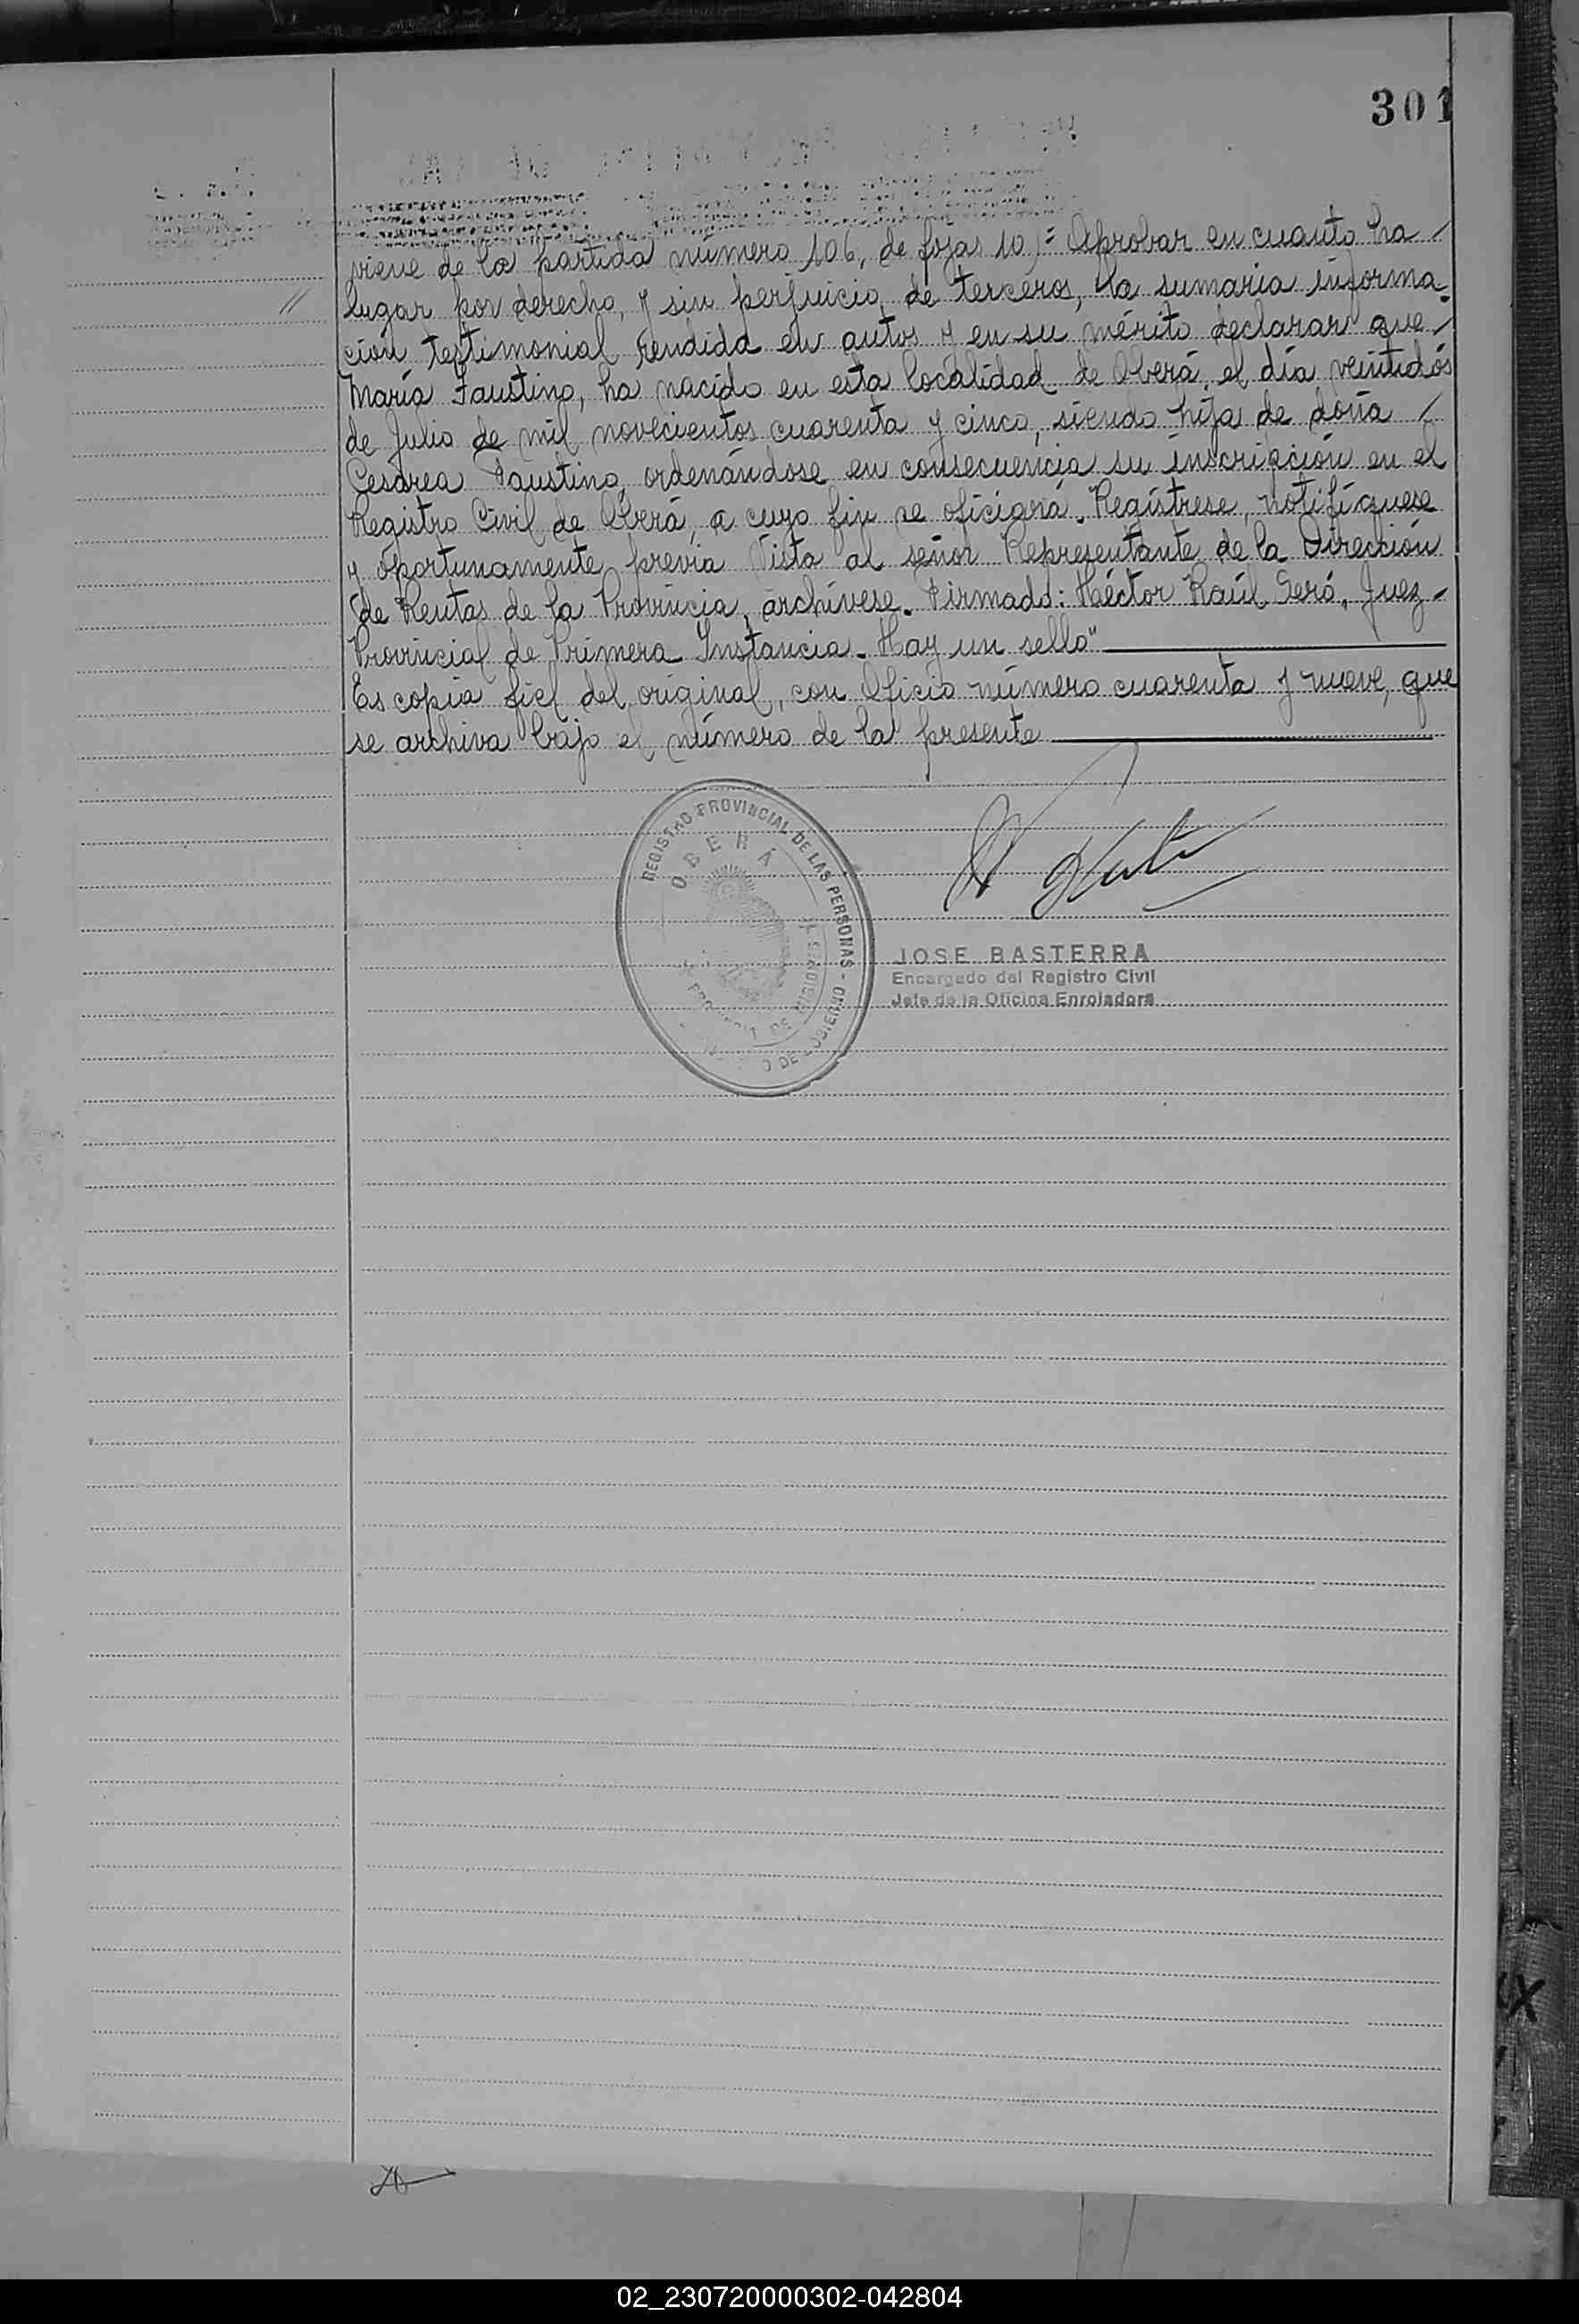 301
viene de la partida número 106, de fojas 10)= Aprobar en cuanto ha /
// lugar por derecho, y sin perjuicio de terceros, la sumaria informa-
ción testimonial rendida en autos y en su mérito declarar que /
María Faustino, ha nacido en esta localidad de Oberá, el día veintidós
de Julio de mil novecientos cuarenta y cinco, siendo hija de doña /
Cesárea Faustino, ordenándose en consecuencia su inscripción en el
Registro Civil de Oberá, a cuyo fin se oficiará. Regístrese, notifíquese
y oportunamente previa Vista al señor Representante de la Dirección
de Rentas de la Provincia, archívese. Firmado: Héctor Raúl Seró, Juez -
Provincial de Primera Instancia. Hay un sello"
Es copia fiel del original, con Oficio número cuarenta y nueve, que
se archiva bajo el número de la presente
REGISTRO PROVINCIAL DE LAS PERSONAS -
OBERÁ
DE MISIONES
JOSE BASTERRA
Encargado del Registro Civil
Jefe de la Oficina Enroladora
02_230720000302-042804